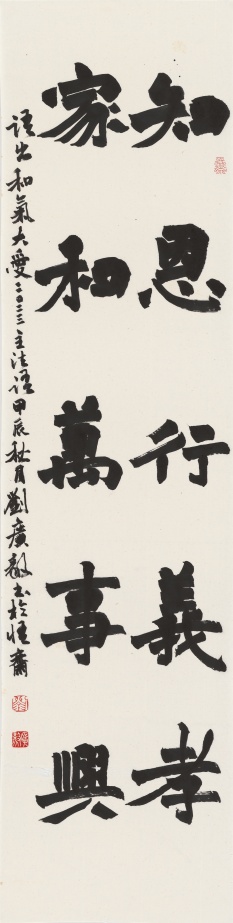 知恩行義孝
家和萬事興
語出和氣大愛二〇二三主法語甲辰秋月劉廣毅書於恆齋